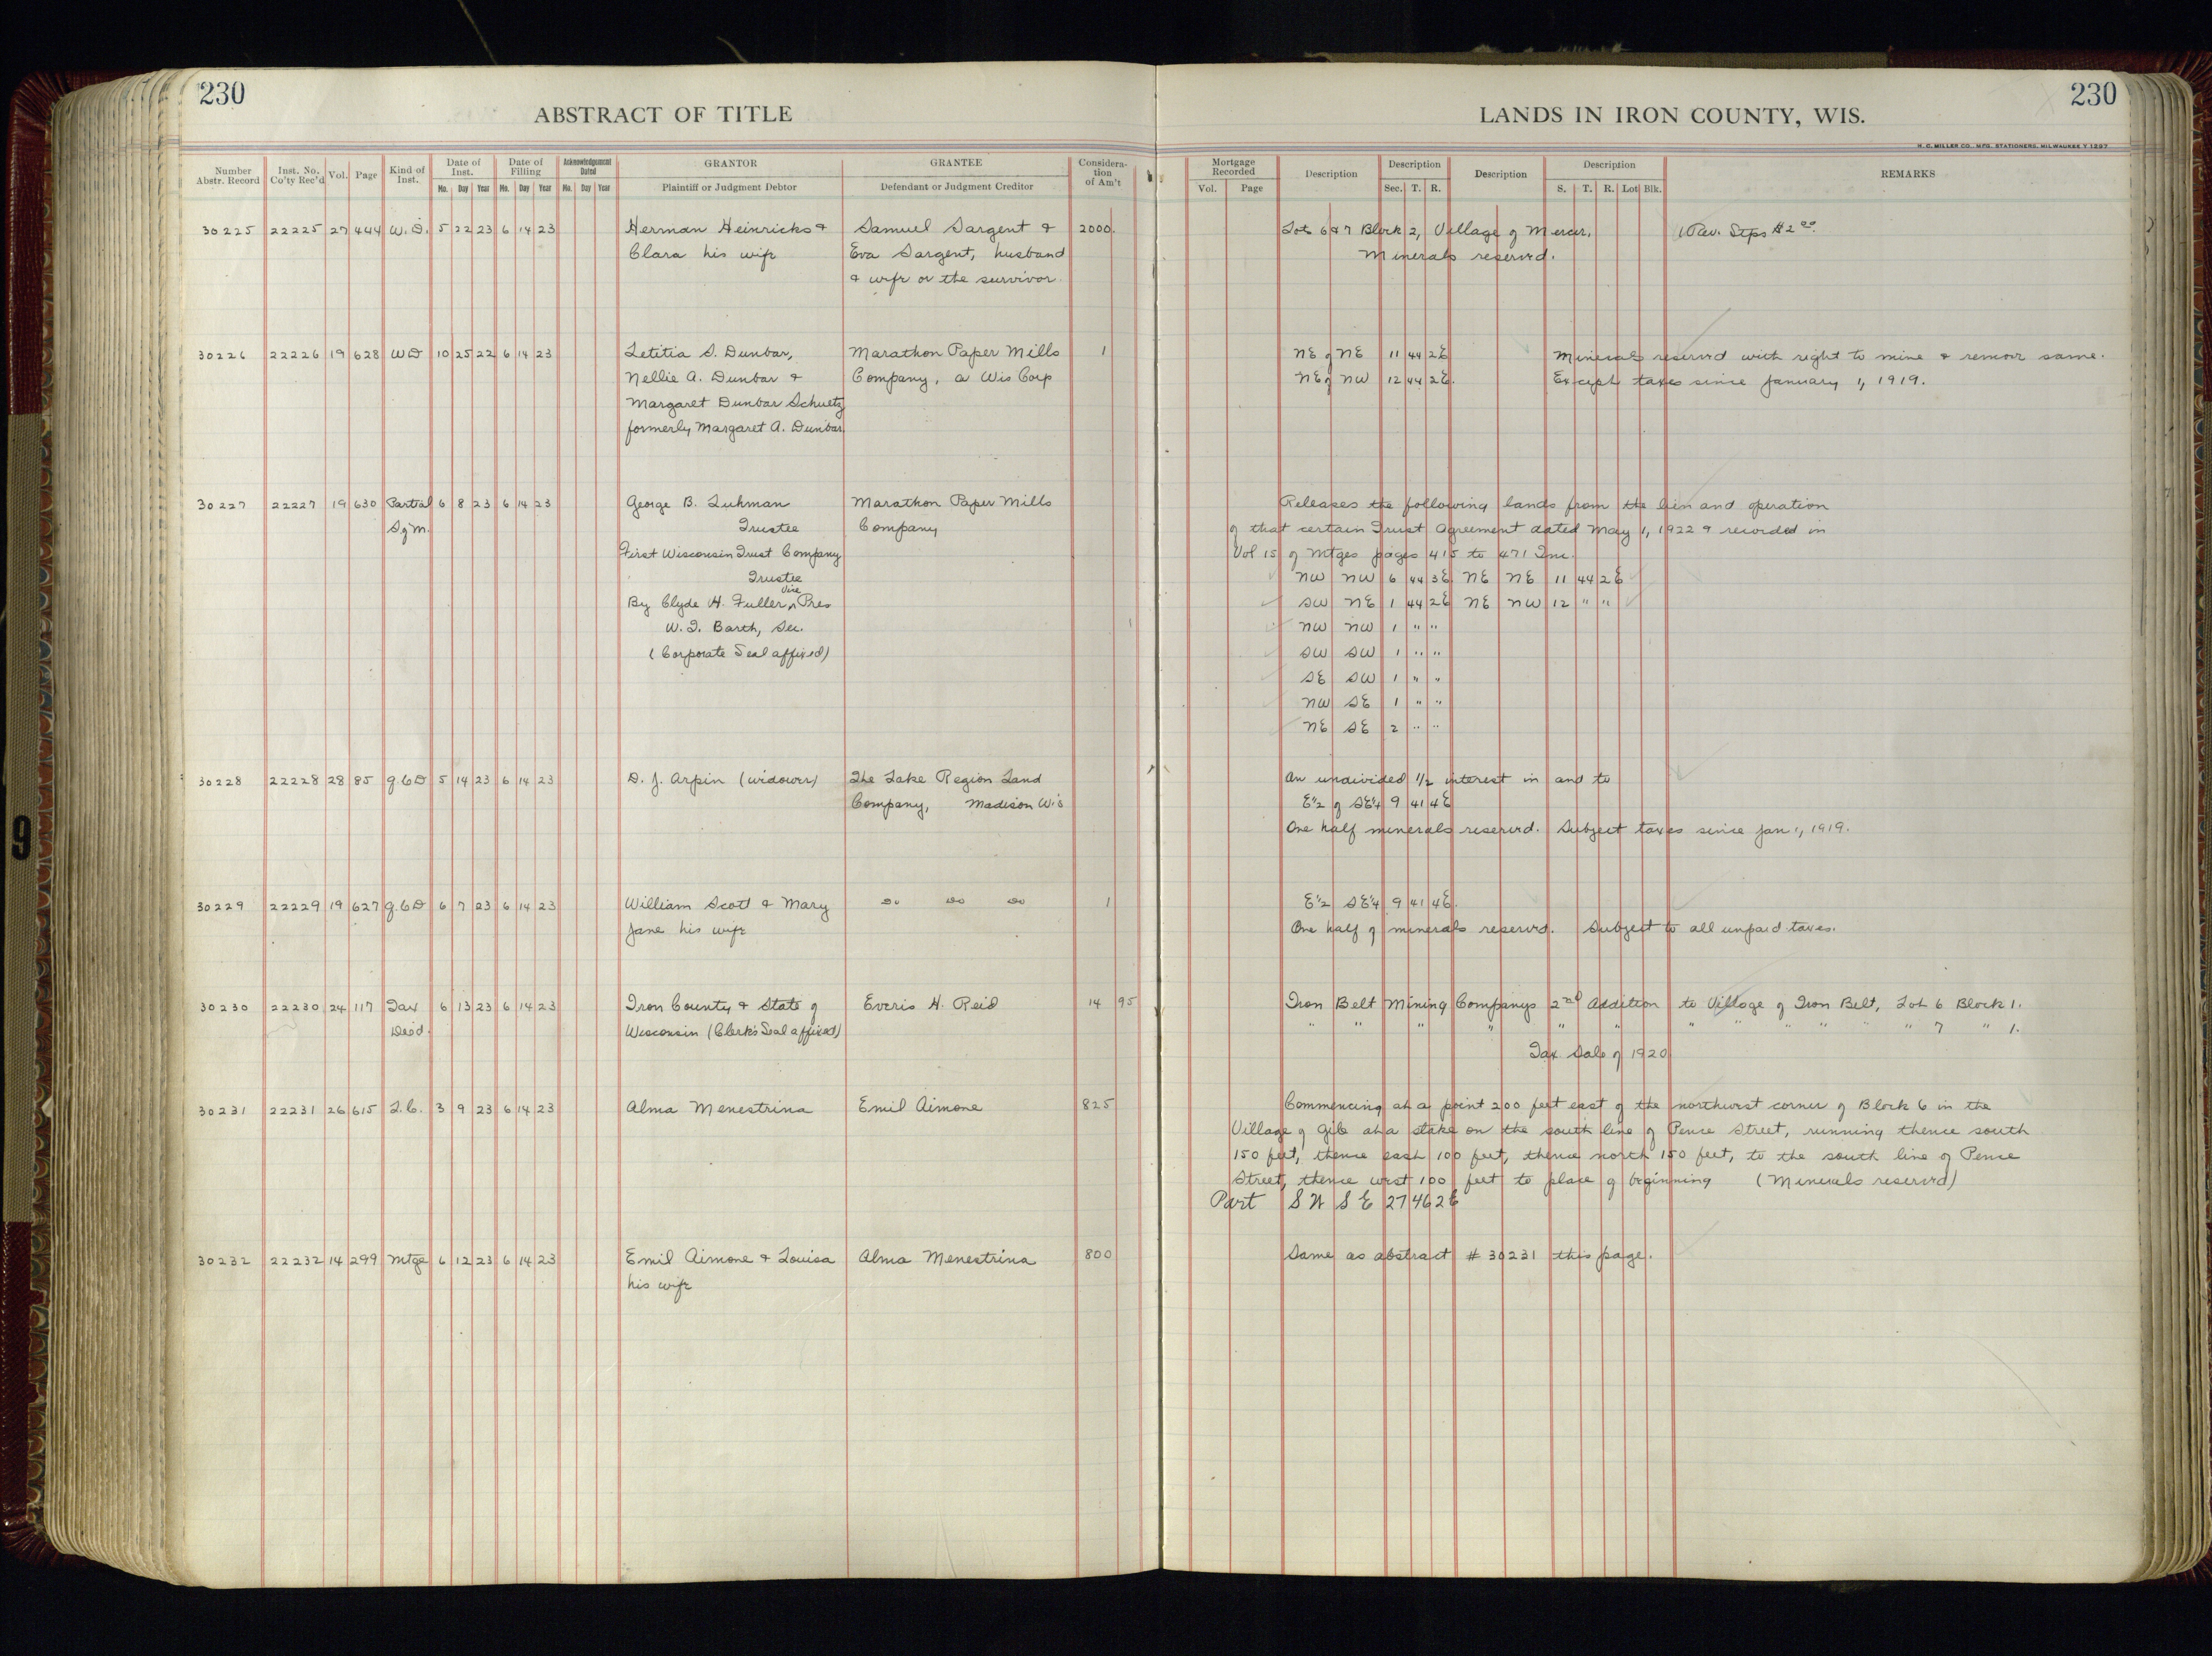 230
ABSTRACT OF TITLE
Number Abstr. Record
Inst. No. Co'ty Rec'd
Vol.
Page
Kind of Inst.
Date of Inst.
Mo. Day Year
Date of Filling
Mo. Day Year
Acknowledgement Dated
Mo. Day Year
GRANTOR
Plaintiff or Judgment Debtor
GRANTEE
Defendant or Judgment Creditor
Considera-
tion
of Am't
230
LANDS IN IRON COUNTY, WIS.
H. C. MILLER CO., MFG. STATIONERS, MILWAUKEE Y 1257
Mortgage Recorded
Vol. Page
Description
Description
Sec. T. R.
Description
Description
S. T. R. Lot Blk.
REMARKS
30225 22225 27 444 W.D. 5 22 23 6 14 23 Herman Heinricks & Samuel Sargent & 2000. Lots 6 & 7 Block 2, Village of Mercer. Rev. Stps $2.00
Clara his wife Eva Sargent, husband Minerals reserved.
& wife or the survivor
30226 22226 19 628 WD 10 25 22 6 14 23 Letitia S. Dunbar, Marathon Paper Mills 1 NE of NE 11 44 2E Minerals reserved with right to mine & remove same.
Nellie A. Dunbar & Company, a Wis Corp NE of NW 12 44 2E. Except taxes since January 1, 1919.
Margaret Dunbar Schuetz
formerly Margaret A. Dunbar
30227 22227 19 630 Partial 6 8 23 6 14 23 George B. Luhman Marathon Paper Mills Releases the following lands from the lien and operation
Sq M. Trustee Company of that certain Trust Agreement dated May 1, 1922 & recorded in
First Wisconsin Trust Company Vol 15 of Mtges pages 415 to 471 Inc.
Trustee NW NW 6 44 3E NE NE 11 44 2E
By Clyde H. Fuller, Vice Pres SW NE 1 44 2E NE NW 12 " "
W. I. Barth, Sec. NW NW 1 " "
(Corporate Seal affixed) SW SW 1 " "
SE SW 1 " "
NW SE 1 " "
NE SE 2 " "
30228 22228 28 85 Q.C.D 5 14 23 6 14 23 D. J. Arpin (widower) The Lake Region Land An undivided 1/2 interest in and to
Company, Madison Wis E½ of SE¼ 9 41 4E
One half minerals reserved. Subject taxes since Jan 1, 1919.
30229 22229 19 627 Q.C.D 6 7 23 6 14 23 William Scott & Mary Do Do Do 1 E½ SE¼ 9 41 4E.
Jane his wife One half of minerals reserved. Subject to all unpaid taxes.
30230 22230 24 117 Tax 6 13 23 6 14 23 Iron County & State of Everis H. Reid 14 95 Iron Belt Mining Companys 2nd Addition to Village of Iron Belt, Lot 6 Block 1.
Deed. Wisconsin (Clerk's Seal affixed) " " " " " " " " " " " " 7 " 1.
Tax Sale of 1920
30231 22231 26 615 L.C. 3 9 23 6 14 23 Alma Menestrina Emil Aimone 825 Commencing at a point 200 feet east of the northwest corner of Block 6 in the
Village of Gile at a stake on the south line of Pence Street, running thence south
150 feet, thence east 100 feet, thence north 150 feet, to the south line of Pence
Street, thence west 100 feet to place of beginning (Minerals reserved)
Part SW SE 27 46 2E
30232 22232 14 299 Mtge 6 12 23 6 14 23 Emil Aimone & Louisa Alma Menestrina 800 Same as abstract # 30231 this page.
his wife
9